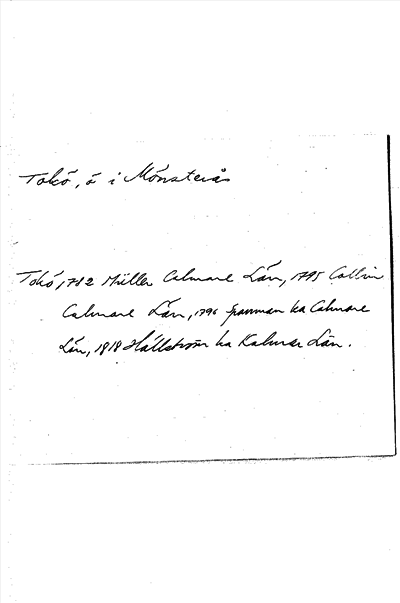 Tokö, ö i Mönsterås
Tokö, 1782 Müller Calmare Län, 1795 Collin
Calmare Län, 1796 ka Calmare
Län, 1818 Hällström ka Kalmar Län.